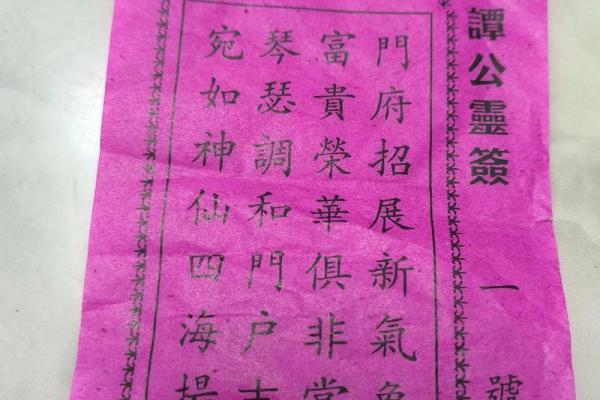 譚公靈簽 一號
門府招展新氣象
富貴榮華俱非常
琴瑟調和門戶
宛如神仙四海揚